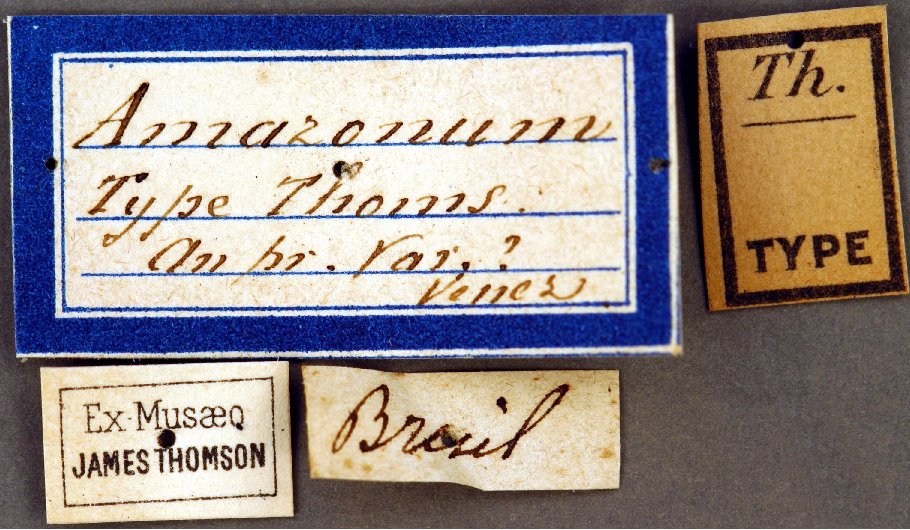 Amazonum
Type Thoms.
An pr. Var.?
Venez
Th.
TYPE
Ex-Musæo
JAMES THOMSON
Bresil